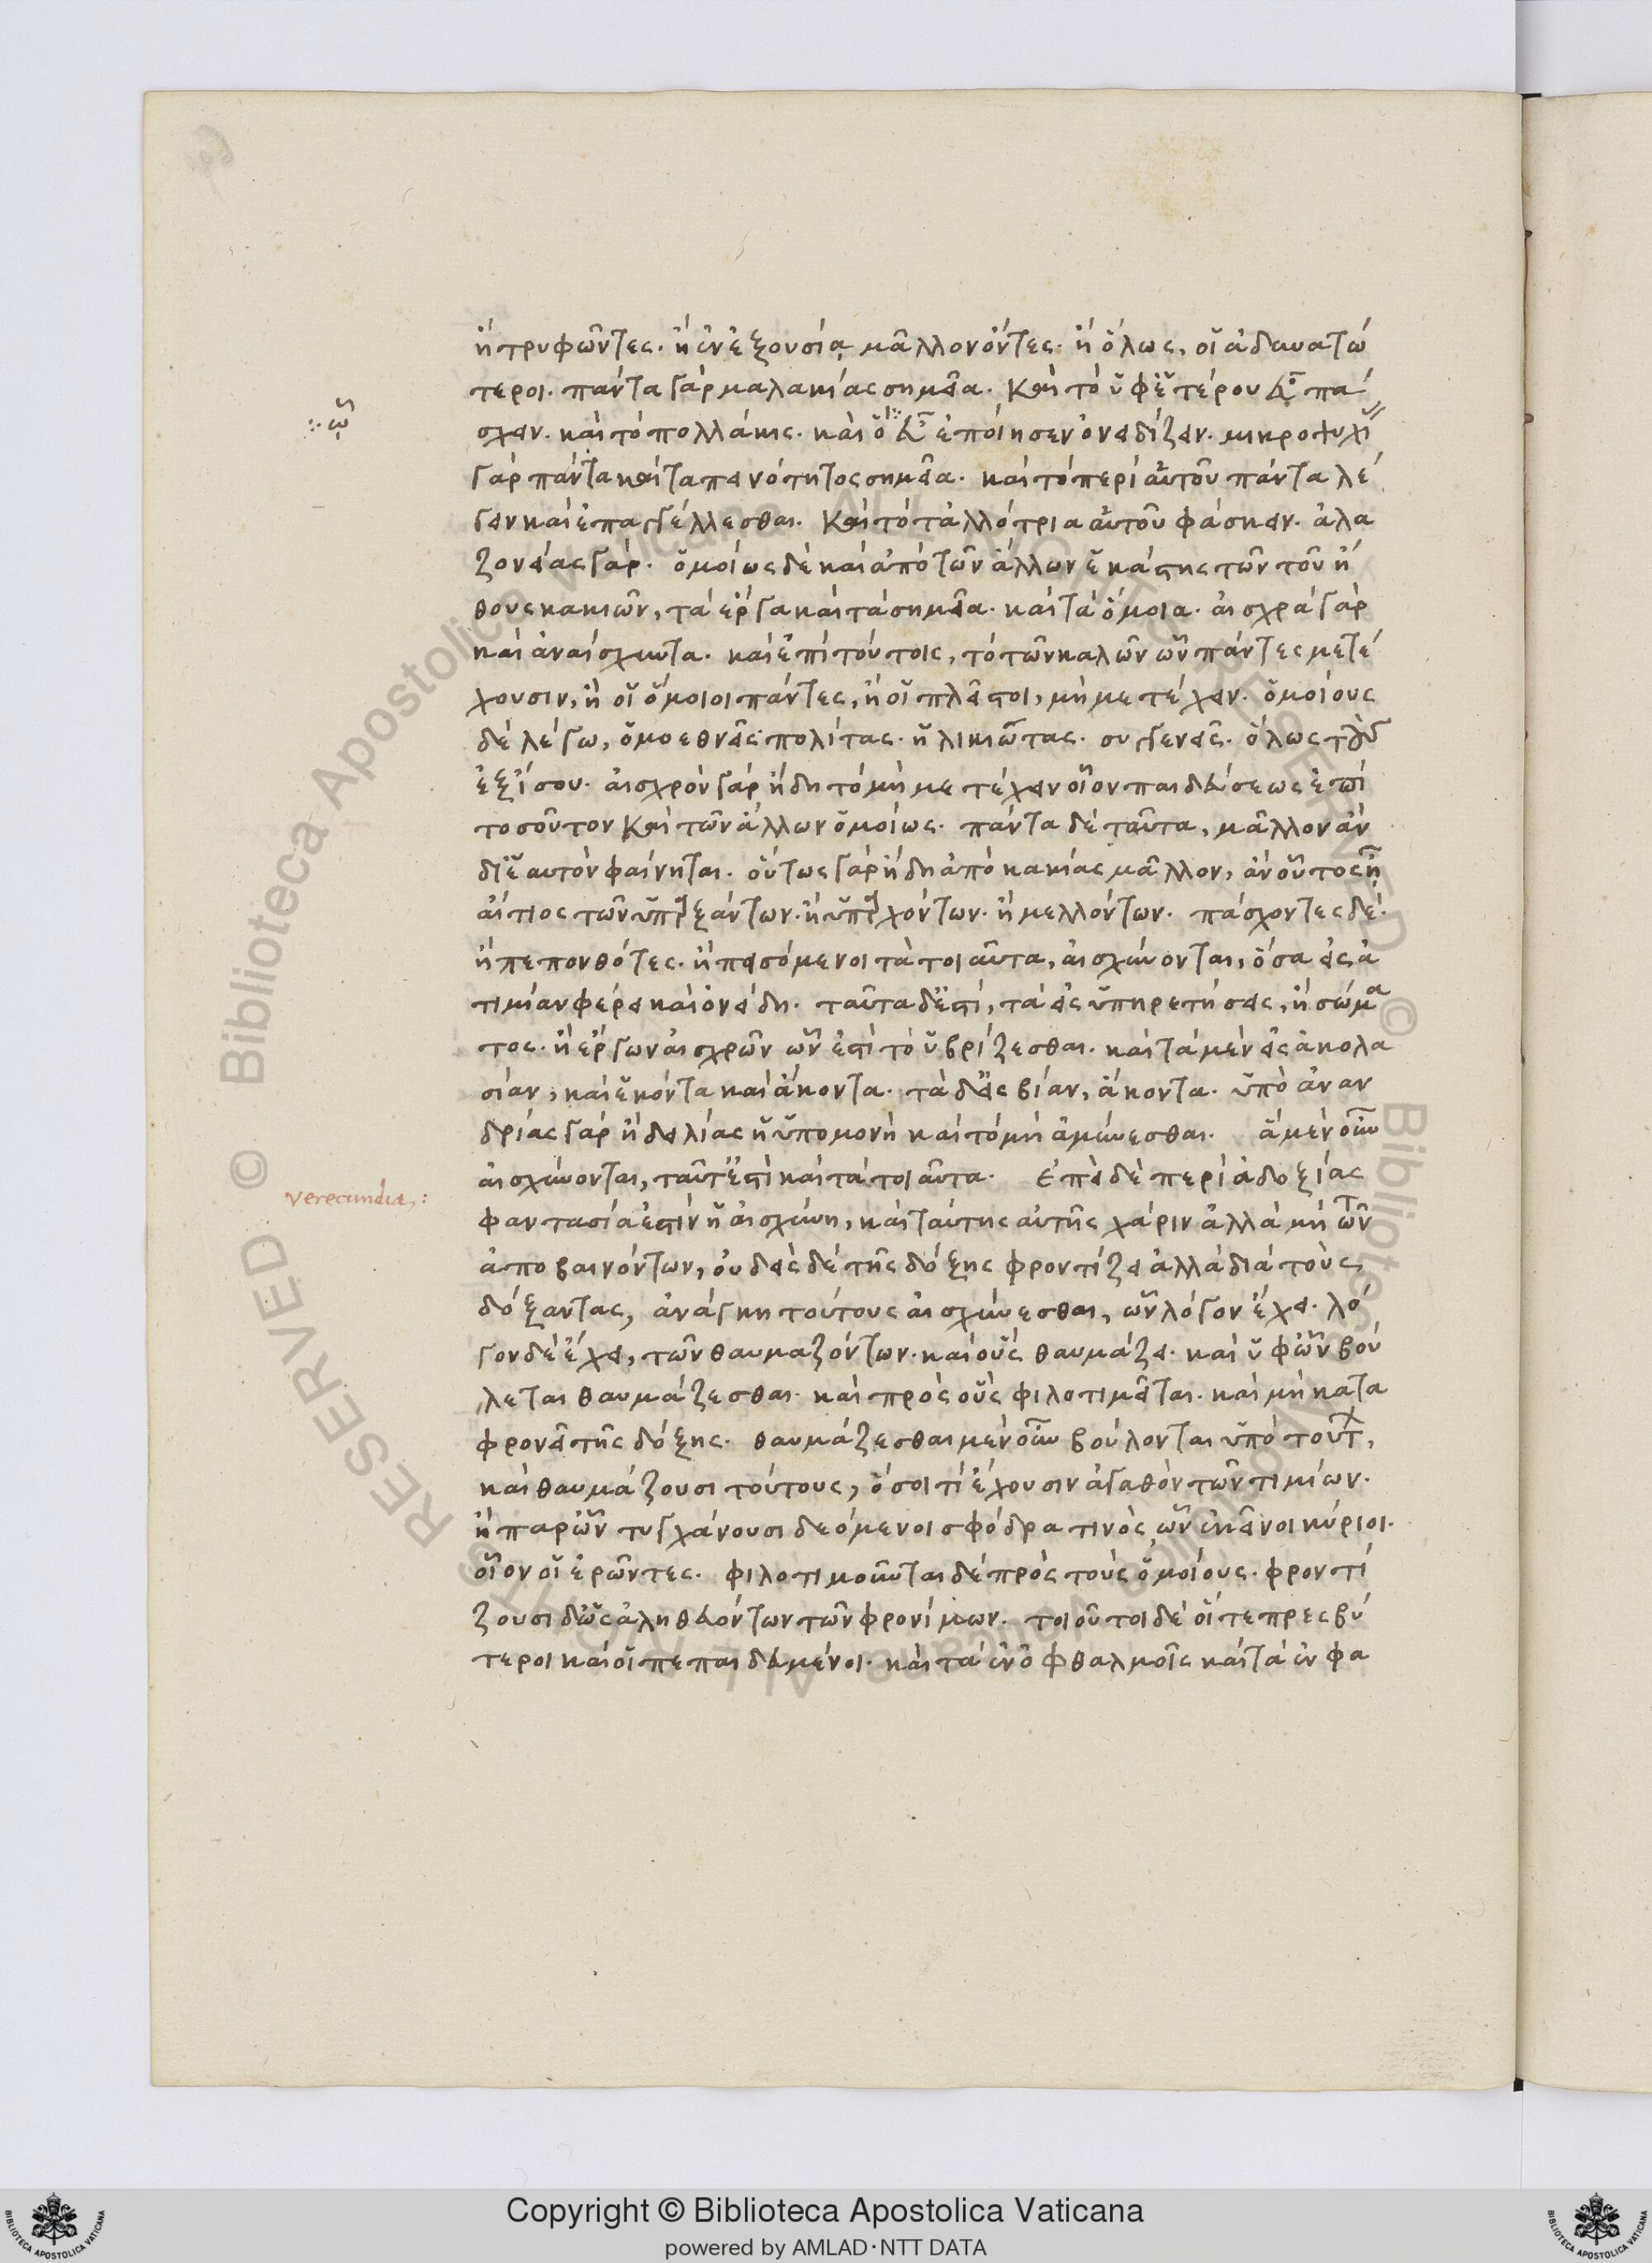 ἢ τρυφῶντες. ἢ ἐν ἐξουσίᾳ μᾶλλον ὄντες. ἢ ὅλως, οἱ ἀδυνατώ
τεροι. πάντα γὰρ μαλακίας σημεῖα. καὶ τὸ ὑφ' ἑτέρου εὖ πά
σχειν. καὶ τὸ πολλάκις. καὶ ὃ εὖ ἐποίησεν ὀνειδίζειν. μικροψυχί
γὰρ πάντα καὶ ταπεινότητος σημεῖα. καὶ τὸ περὶ αὑτοῦ πάντα λέ
γειν καὶ ἐπαγγέλλεσθαι. καὶ τὸ τἀλλότρια αὑτοῦ φάσκειν. ἀλα
ζονείας γάρ. ὁμοίως δὲ καὶ ἀπὸ τῶν ἄλλων ἑκάστης τῶν τοῦ ἤ
θους κακιῶν, τὰ ἔργα καὶ τὰ σημεῖα. καὶ τὰ ὅμοια. αἰσχρὰ γὰρ
καὶ ἀναίσχυντα. καὶ ἐπὶ τούτοις, τὸ τῶν καλῶν ὧν πάντες μετέ
χουσιν, ἢ οἱ ὅμοιοι πάντες, ἢ οἱ πλεῖστοι, μὴ μετέχειν. ὁμοίους
δὲ λέγω, ὁμοεθνεῖς πολίτας. ἡλικιώτας. συγγενεῖς. ὅλως τοὺς
ἐξίσου. αἰσχρὸν γὰρ ἤδη τὸ μὴ μετέχειν οἷον παιδεύσεως ἐπὶ
τοσοῦτον καὶ τῶν ἄλλων ὁμοίως. πάντα δὲ ταῦτα, μᾶλλον ἂν
δι' ἑαυτὸν φαίνηται. οὕτως γὰρ ἤδη ἀπὸ κακίας μᾶλλον, ἂν οὗτος ᾖ
αἴτιος τῶν ὑπαρξάντων. ἢ ὑπαρχόντων. ἢ μελλόντων. πάσχοντες δέ.
ἢ πεπονθότες. ἢ πεισόμενοι τὰ τοιαῦτα, αἰσχύνονται, ὅσα εἰς ἀ
τιμίαν φέρει καὶ ὀνείδη. ταῦτα δ' ἐστί, τὰ εἰς ὑπηρετήσεις, ἢ σώμα
τος. ἢ ἔργων αἰσχρῶν ὧν ἐστὶ τὸ ὑβρίζεσθαι. καὶ τὰ μὲν εἰς ἀκολα
σίαν, καὶ ἑκόντα καὶ ἄκοντα. τὰ δ' εἰς βίαν, ἄκοντα. ὑπὸ ἀναν
δρίας γὰρ ἢ δειλίας ἡ ὑπομονὴ καὶ τὸ μὴ ἀμύνεσθαι. ἃ μὲν οὖν
αἰσχύνονται, ταῦτ' ἐστὶ καὶ τὰ τοιαῦτα. ἐπεὶ δὲ περὶ ἀδοξίας
verecundia:
φαντασία ἐστὶν ἡ αἰσχύνη, καὶ ταύτης αὐτῆς χάριν ἀλλὰ μὴ τῶν
ἀποβαινόντων, οὐδεὶς δὲ τῆς δόξης φροντίζει ἀλλὰ διὰ τοὺς
δόξαντας, ἀνάγκη τούτους αἰσχύνεσθαι, ὧν λόγον ἔχει. λό
γον δὲ ἔχει, τῶν θαυμαζόντων. καὶ οὓς θαυμάζει. καὶ ὑφ' ὧν βού
λεται θαυμάζεσθαι. καὶ πρὸς οὓς φιλοτιμεῖται. καὶ μὴ κατα
φρονεῖ τῆς δόξης. θαυμάζεσθαι μὲν οὖν βούλονται ὑπὸ τούτ,
καὶ θαυμάζουσι τούτους, ὅσοι τὶ ἔχουσιν ἀγαθὸν τῶν τιμίων.
ἢ παρ' ὧν τυγχάνουσι δεόμενοι σφόδρα τινὸς ὧν ἐκεῖνοι κύριοι.
οἷον οἱ ἐρῶντες. φιλοτιμοῦνται δὲ πρὸς τοὺς ὁμοίους. φροντί
ζουσι δ' ὡς ἀληθευόντων τῶν φρονίμων. τοιοῦτοι δὲ οἵ τε πρεσβύ
τεροι καὶ οἱ πεπαιδευμένοι. καὶ τὰ ἐν ὀφθαλμοῖς καὶ τὰ ἐν φα
Copyright © Biblioteca Apostolica Vaticana
powered by AMLAD·NTT DATA